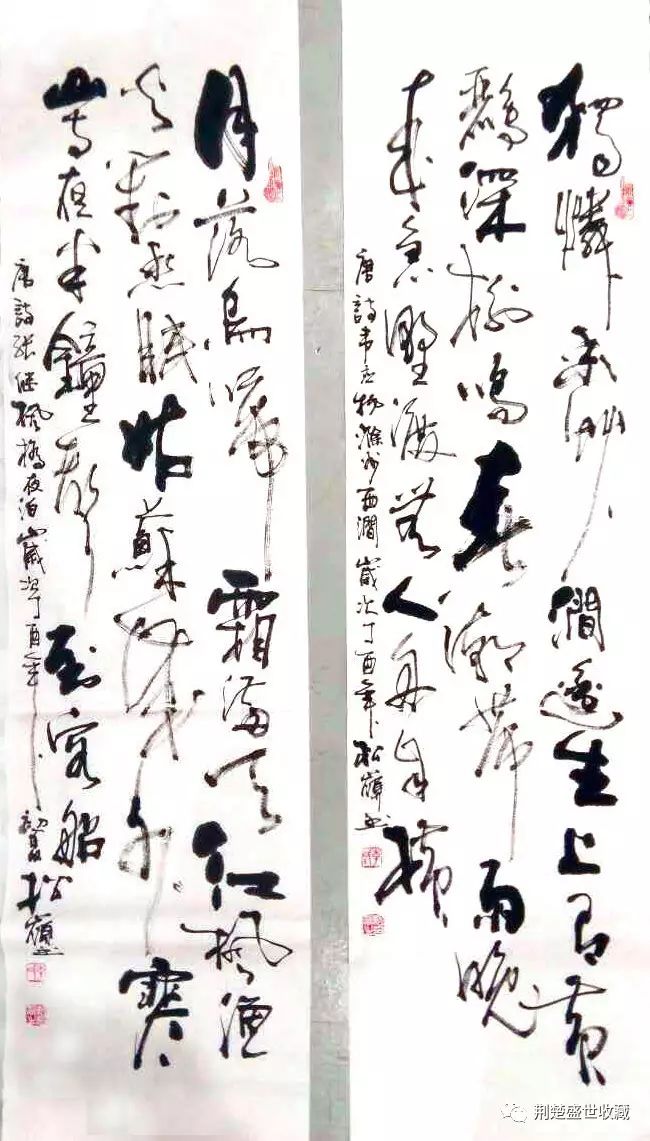 獨憐幽草澗邊生上有黃
鸝深樹鳴春潮帶雨晚
來急野渡無人舟自橫
唐詩韋应物滁州西澗歲次丁酉年松嶺书
月落烏啼霜滿天江楓漁
火對愁眠姑蘇城外寒
山寺夜半鐘聲到客船
唐詩張继楓橋夜泊歲次丁酉年初夏松嶺书
荆楚盛世收藏